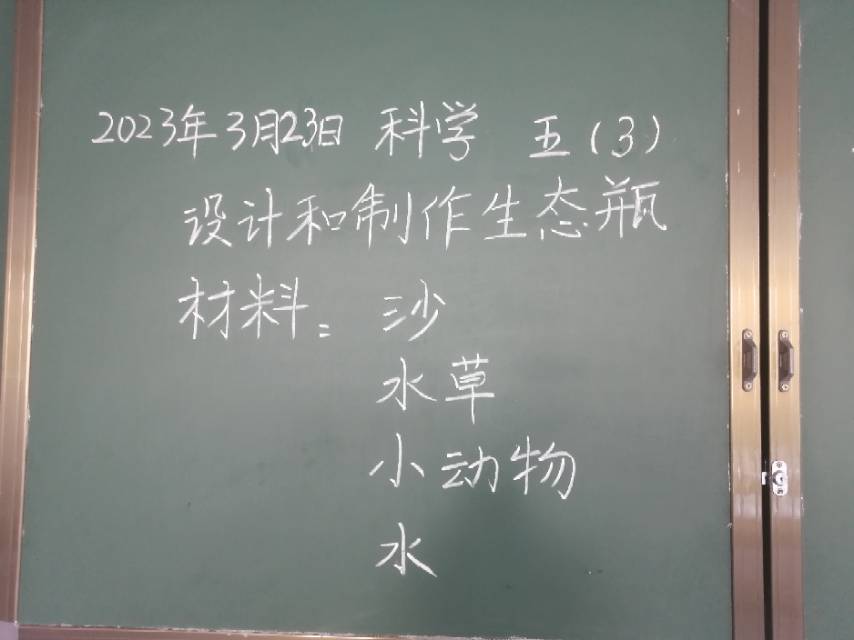 2023年3月23日 科学 五(3)
设计和制作生态瓶
材料: 沙
水草
小动物
水